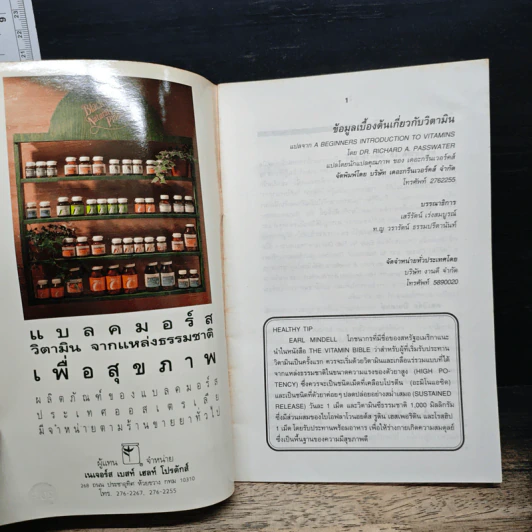 แบลคมอร์ส
วิตามิน จากแหล่งธรรมชาติ
เพื่อสุขภาพ
ผลิตภัณฑ์ของแบลคมอร์ส
ประเทศออสเตรเลีย
มีจำหน่ายตามร้านขายยาทั่วไป
ผู้แทน จำหน่าย
เนเจอร์ส เบสท์ เฮลท์ โปรดักส์
โทร. 276-2267, 276-2255
1
ข้อมูลเบื้องต้นเกี่ยวกับวิตามิน
แปลจาก A BEGINNERS INTRODUCTION TO VITAMINS
โดย DR. RICHARD A. PASSWATER
แปลโดยนักแปลคุณภาพ ของ เดอะกรีนเวอร์คส์
จัดพิมพ์โดย บริษัท เดอะกรีนเวอร์คส์ จำกัด
โทรศัพท์ 2762255
บรรณาธิการ
เสรีรัตน์ เร่งสมบูรณ์
ท.ญ. วรารัตน์ ธรรมปรีดานันท์
จัดจำหน่ายทั่วประเทศโดย
บริษัท งานดี จำกัด
โทรศัพท์ 5890020
HEALTHY TIP
EARL MINDELL โภชนากรที่มีชื่อของสหรัฐอเมริกาแนะ
นำในหนังสือ THE VITAMIN BIBLE ว่าสำหรับผู้ที่เริ่มรับประทาน
วิตามินเป็นครั้งแรก ควรจะเริ่มด้วยวิตามินและเกลือแร่รวมแบบที่ได้
จากแหล่งธรรมชาติในขนาดความแรงของตัวยาสูง (HIGH PO-
TENCY) ซึ่งควรจะเป็นชนิดเม็ดที่เคลือบโปรตีน (อะมิโนแอซิด)
และเป็นชนิดที่ตัวยาค่อยๆ ปลดปล่อยอย่างสม่ำเสมอ (SUSTAINED
RELEASE) วันละ 1 เม็ด และวิตามินซีธรรมชาติ 1,000 มิลลิกรัม
ซึ่งมีส่วนผสมของไบโอฟลาโวนอยด์ส รูติน เฮสเพอริดิน และโรสฮิป
1 เม็ด โดยรับประทานพร้อมอาหาร เพื่อให้ร่างกายเกิดความสมดุลย์
ซึ่งเป็นพื้นฐานของความมีสุขภาพดี